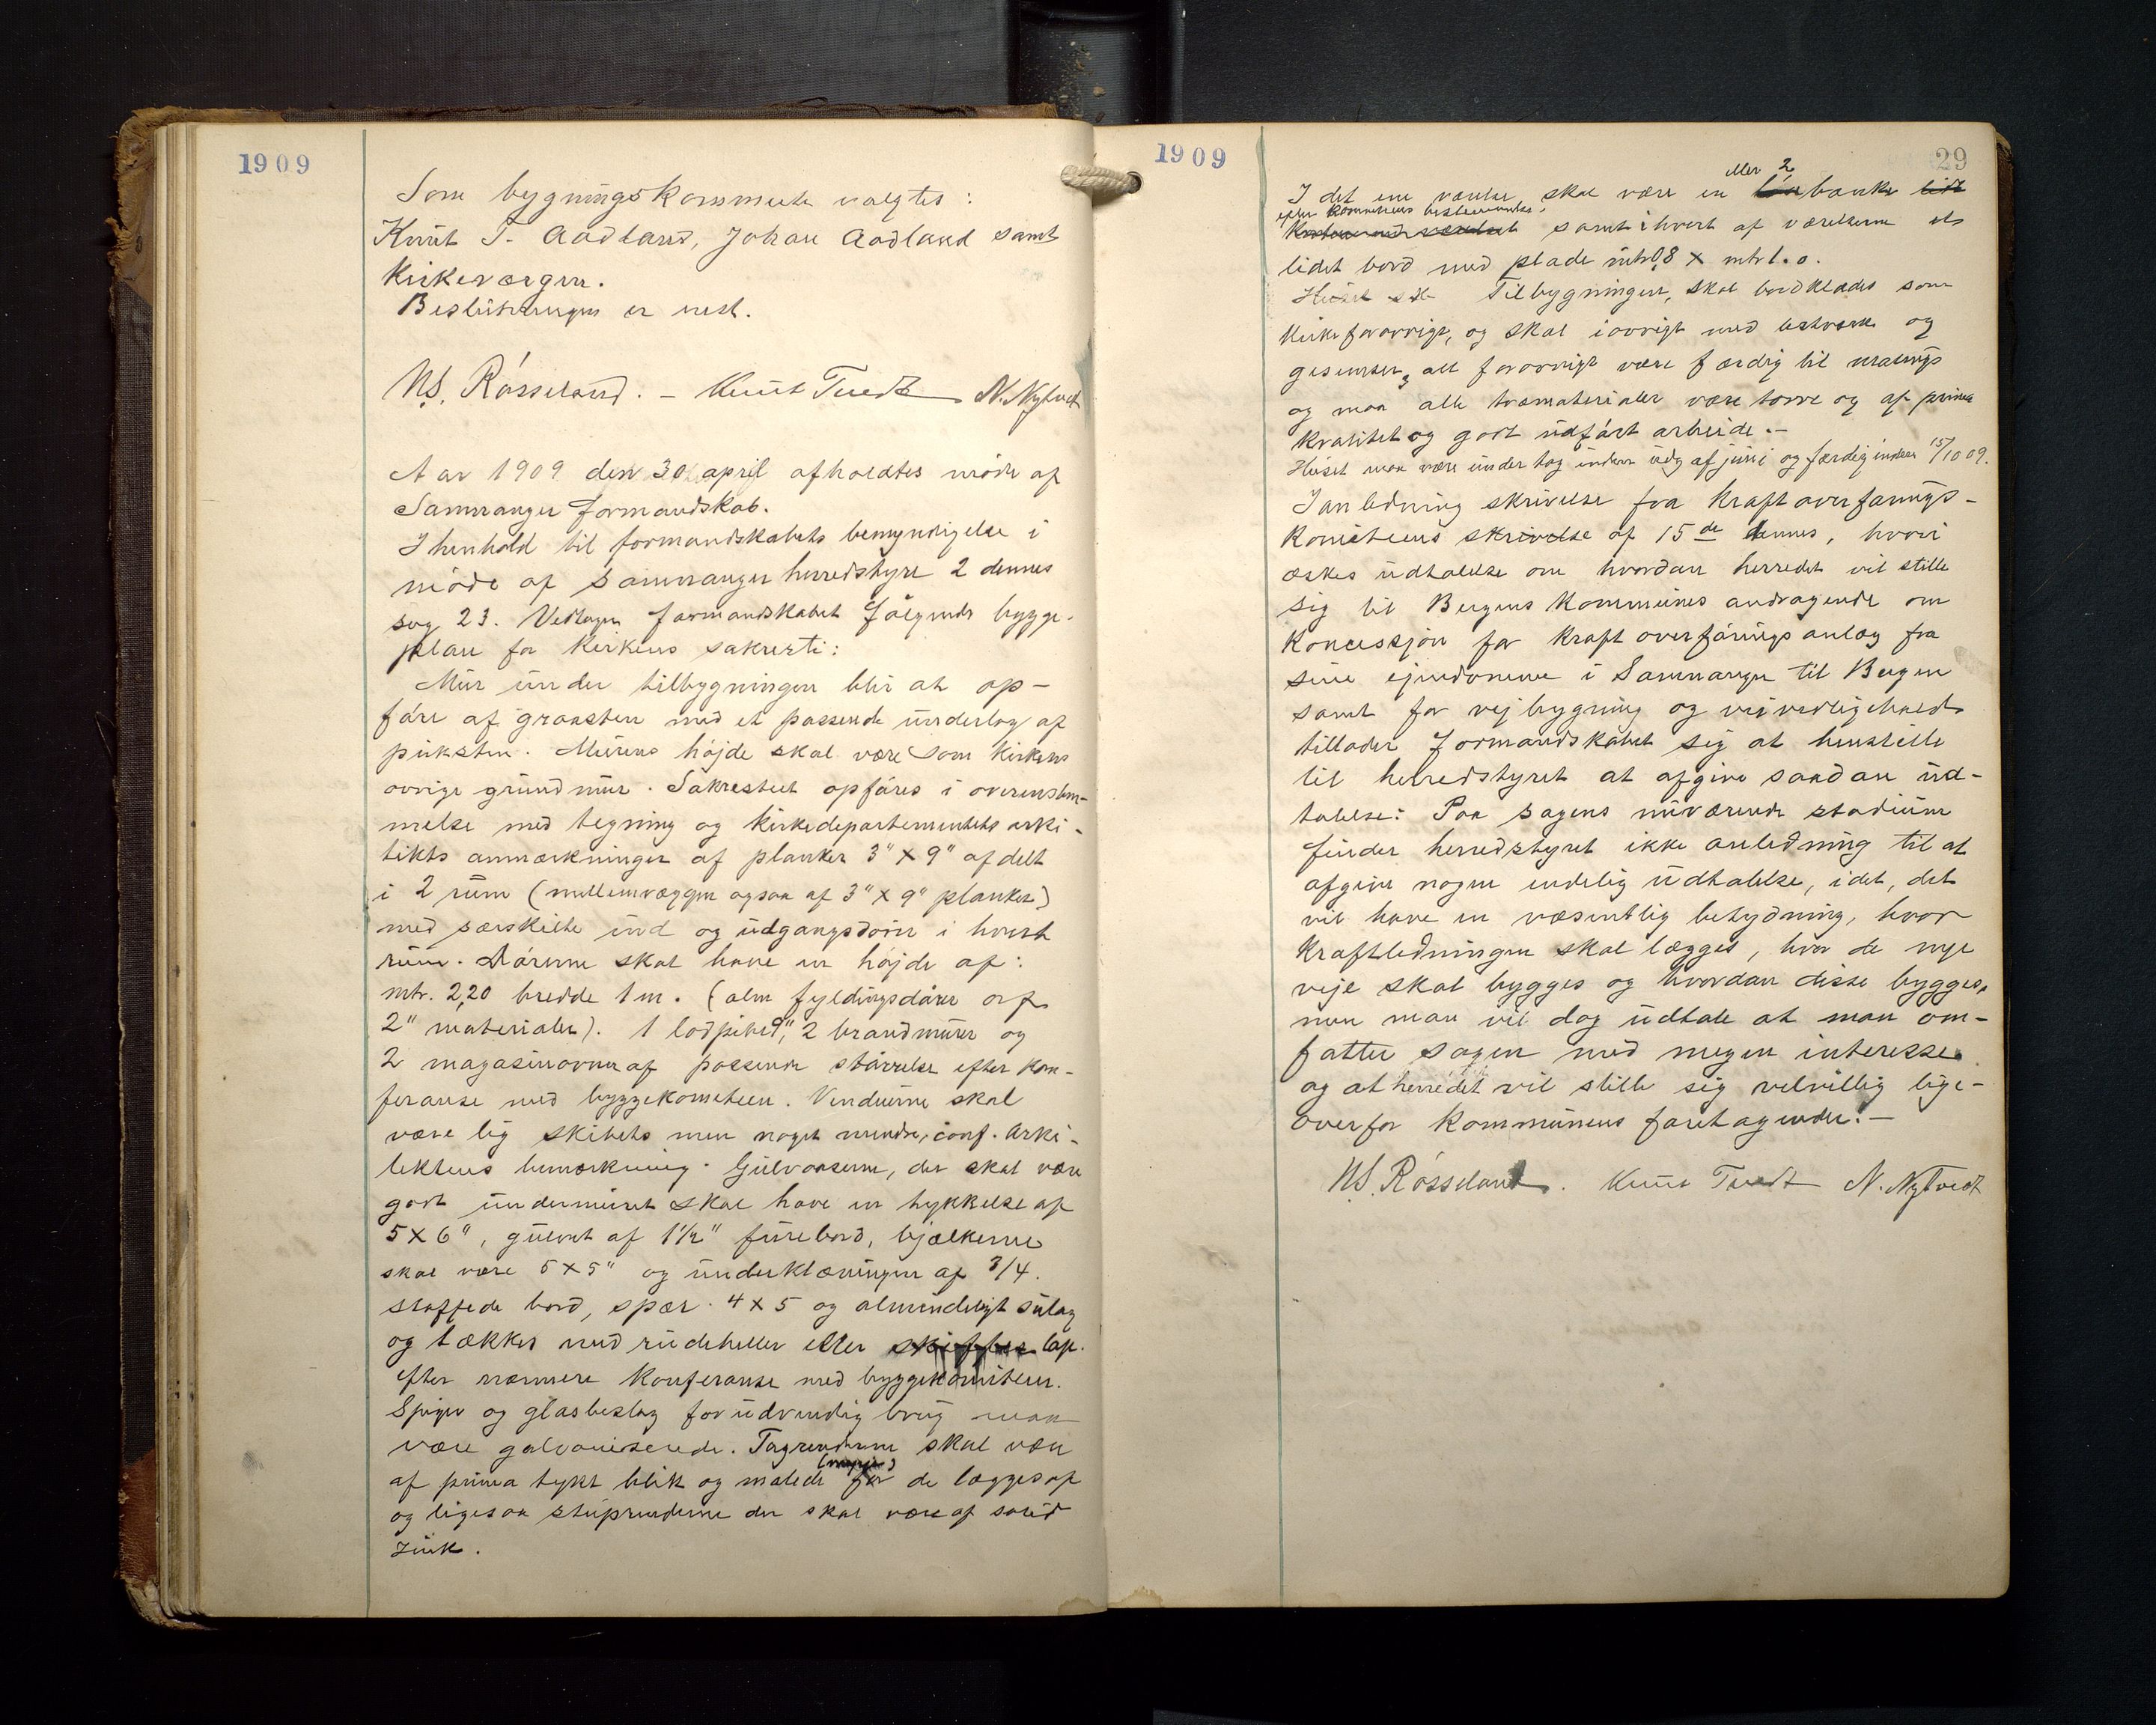 1909
Som bygningskommite valgtes:
Knut T. Aadland, Johan Aadland samt
Kirkeværgen.
Beslutningen er enst.
N.S. Rösseland. - Knut Tvedt N. Nytvedt
Aar 1909 den 30 april afholdtes möde af
Samnanger formandskab.
I henhold til formandskabets bemyndigelse i
möde af Samnanger herredstyre 2 dennes
sag 23. Vedtager formandskabet fölgende bygge-
plan for Kirkens sakresti:
Mur under tilbygningen blir at op-
före af graasten med et passende underlag af
puksten. Murens höjde skal være som Kirkens
övrige grundmur. Sakrestiet opföres i overenstem-
melse med tegning og Kirkedepartementets arki-
tikts anmærkninger af planker 3" x 9" afdelt
i 2 rum (mellemvæggen ogsaa af 3" x 9" planker)
med særskilte ind og udgangsdörer i hvert
rum. Dörerne skal have en höjde af:
mtr. 2,20 bredde 1 m. (alm fyldingsdörer af
2" materialer). 1 lodpibe 9", 2 brandmurer og
2 magasinovner af passende störrelse efter kon-
feranse med byggekomiteen. Vinduerne skal
være lig skibets men noget mindre, conf. Arki-
tektens bemærkning. Gulvaaserne, der skal være
godt undermuret skal have en tykkelse af
5 x 6", gulvet af 1½" furebord, bjælkerne
skal være 5 x 5" og underklæningen af 3/4.
staffede bord, spær 4 x 5 og almindeligt sulag
og tækkes med rudeheller eller skiffer lap.
efter nærmere Konferanse med byggekomiteen.
Spiger og glasbeslag for udvendig brug maa
være galvaniserede. Tagrenderne skal være
af prima tykt blik og malede för de lægges op
og ligesaa stuprenderne der skal være af solid
zink.
1909
29
eller 2
I det ene værelse skal være en benke
efter Komiteens bestemmelse,
samt i hvert af værelserne et
lidet bord med plade mtr 0,8 x mtr 1.0.
Tilbygningen, skal bordklædes som
Kirken forövrigt, og skal iövrigt med listverk og
gesimser, alt forövrigt være færdig til malings
og maa alle træmaterialer være törre og af prima
Kvalitet og godt udfört arbeide.-
Huset maa være under tag inden udg af juni og færdig inden 15/10 09.
I anledning skrivelse fra Kraftoverförings-
Komiteens skrivelse af 15de dennes, hvori
æskes udtalelse om hvordan herredet vil stille
sig til Bergens Kommunes andragende om
Koncessjon for Kraftoverföringsanlæg fra
sine ejendomme i Samnanger til Bergen
samt for vejbygning og veivedligehold
tillader formandskabet sig at henstille
til herredstyret at afgive saadan ud-
talelse: Paa sagens nuværende stadium
finder herredstyret ikke anledning til at
afgive nogen endelig udtalelse, idet, det
vil have en væsentlig betydning, hvor
Kraftledningen skal lægges, hvor de nye
veje skal bygges og hvordan disse bygges,
men man vil dog udtale at man om-
fatter sagen med megen interesse
og at herredet vil stille sig velvillig lige-
overfor Kommunens foretagender.-
N.S. Rösseland. Knut Tvedt N. Nytvedt